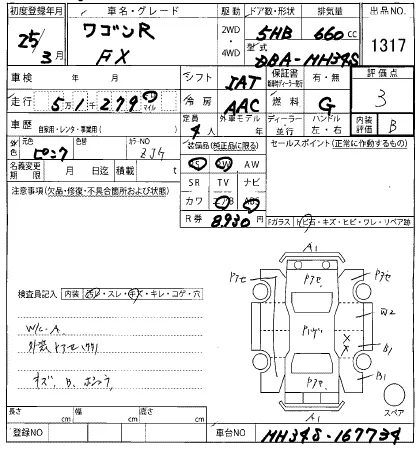 初度登録年月 車名・グレード 駆動 ドア数・形状 排気量 出品NO
25年3月 ワゴンR FX 2WD・4WD 5HB 660cc 1317
型式 DBA-MH34S
車検 年 月 シフト IAT 保証書 有・無 評価点 3
走行 5万1千279 km マイル 冷房 AAC 燃料 G
車歴 自家用・レンタ・事業用( ) 定員 4人 外車モデル 年 ディーラー・並行 ハンドル 左・右 内装評価 B
外色 元色 ピンク 色替 カラーNO ZJ4 装備品(純正品に限る) セールスポイント(正常に作動するもの)
名義変更期限 月 日迄 積載 t PS PW AW
SR TV ナビ
注意事項(欠品・修復・不具合箇所および状態) カワ エアB ABS
R券 8,930円 Fガラス トビ石・キズ・ヒビ・ワレ・リペア跡
A1
アセ アセ
検査員記入 内装 スレ・キレ・コゲ・穴
W/C-A
外装
キズ、B、
B1
B1
A1
スペア
長さ cm 幅 cm 高さ cm
登録NO 車台NO MH34S-167734